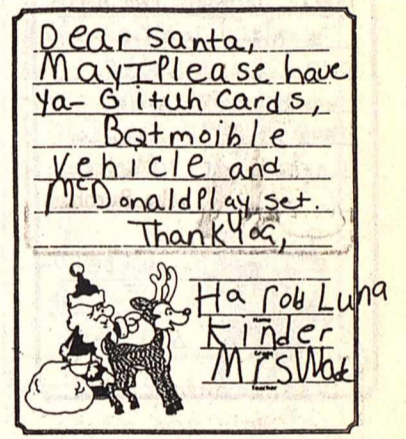 Dear Santa,
May I Please have
Ya-Gituh Cards,
Batmoible
Vehicle and
McDonaldPlay set.
Thank You,
Harob Luna
Name
Kinder
Grade
Mrs Wad
Teacher